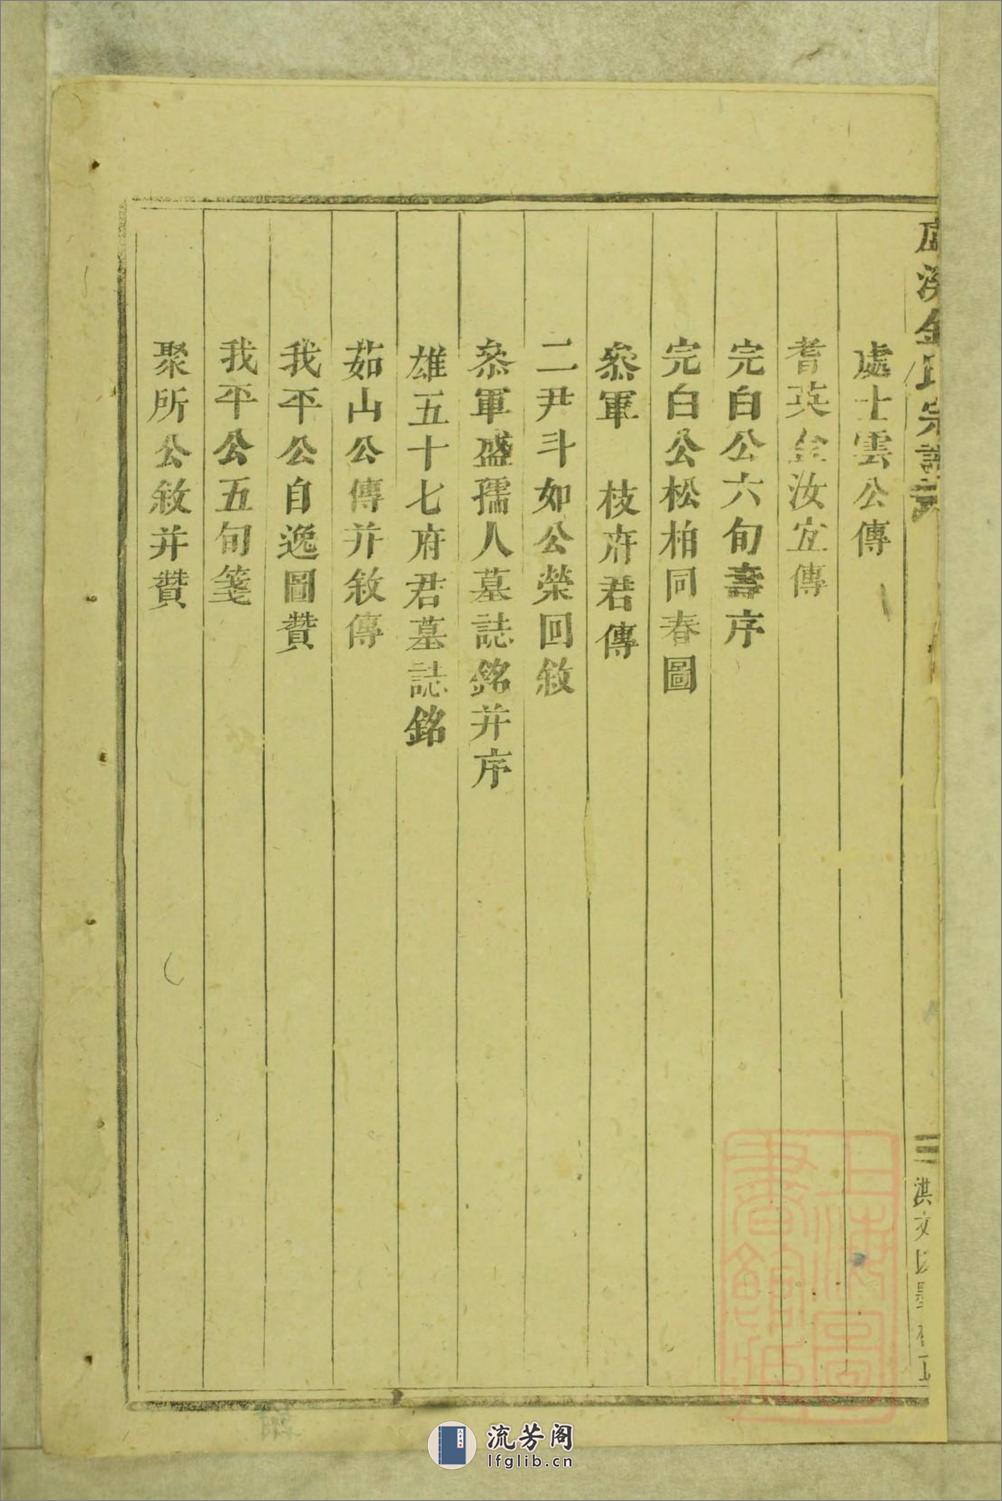 金氏宗譜
處士雲公傳
耆英金汝宜傳
完白公六旬壽序
完白公松柏同春圖
叅軍 枝府君傳
二尹斗如公榮回敘
叅軍盛孺人墓誌銘并序
雄五十七府君墓誌銘
茹山公傳并敘傳
我平公自逸圖贊
我平公五旬箋
聚所公敘并贊
三
洪文
上海圖書館藏
流芳阁
lfglib.cn